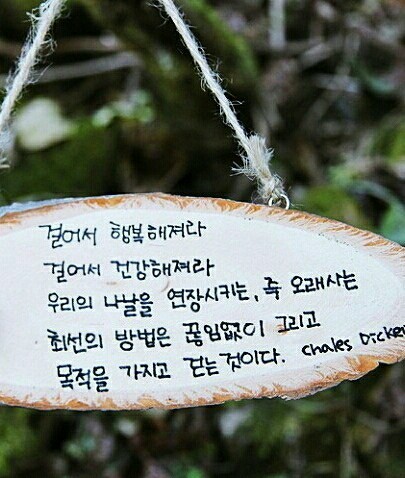 걸어서 행복해져라
걸어서 건강해져라
우리의 나날을 연장시키는, 즉 오래사는
최선의 방법은 끊임없이 그리고
목적을 가지고 걷는것이다. Chales Dicke